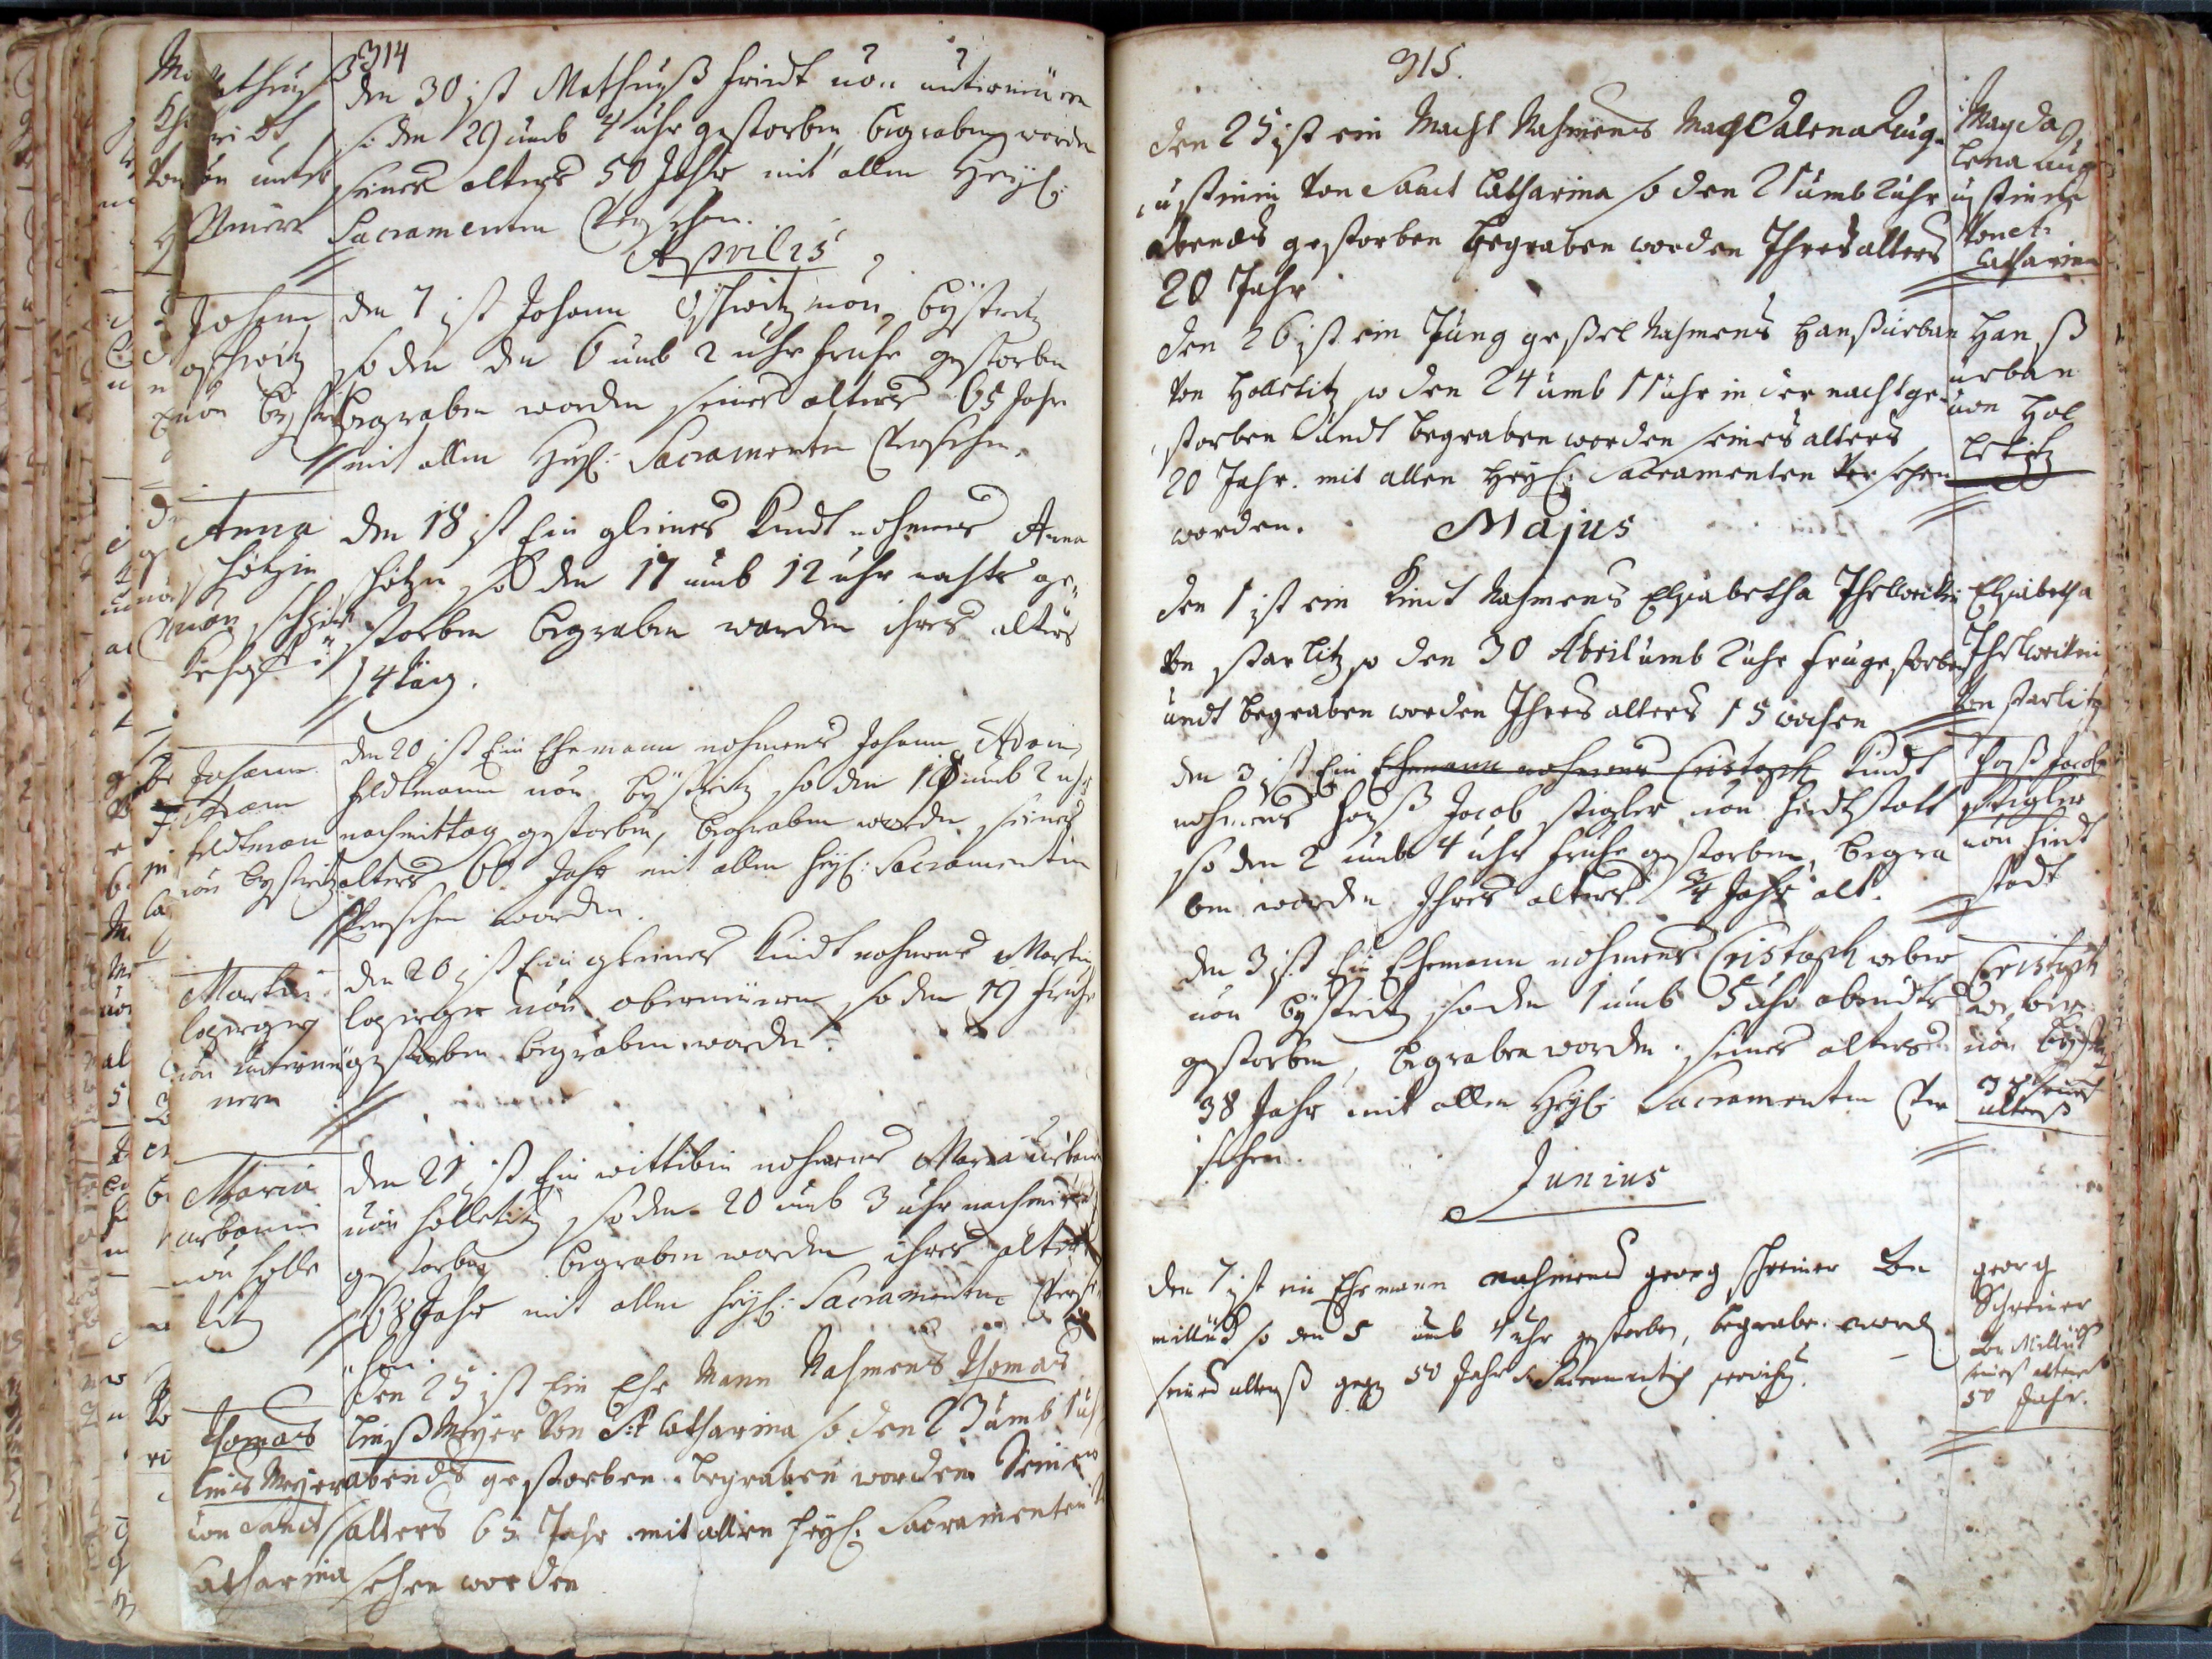 314
Mathuß
friedt
von unter
Neuern
den 30 ist Mathuß friedt von unterneuern
so den 29 umb 4 uhr gestorben, begraben worden
seines alters 50 Jahr mit allen Heyl:
Sacramenten Versehen.
Aprilis
Johann
von Bystritz
den 7 ist Johann von Bÿstritz
so den den 6 umb 2 uhr fruhe gestorben
begraben worden seines alters 65 Jahr
mit allen Heyl: Sacramenten Versehen.
Anna
von
den 18 ist Ein gleines Kindt nahmens Anna
so den 17 umb 12 uhr nachts ge,
storben begraben worden ihres alters
14 täg.
Johann
Adam
feldtman
von bystritz
den 20 ist Ein Ehemann nahmens Johann Adam
feldtmann von bÿstritz so den 18 umb 2 uhr
nachmittag gestorben, begraben worden seines
alters 60 Jahr mit allen heyl: Sacramenten
Versehen worden.
Martin
von unterneü
nern
den 20 ist Ein gleines Kindt nahmens Martin
von oberneüern so den 19 fruhe
gestorben begraben worden.
Maria
urbanin
von holle
titz
den 21 ist Ein wittibin nahmens Maria urbanin
von holletitz so den 20 umb 3 uhr nachmittag
gestorben begraben worden ihres alters
68 Jahr mit allen heyl: Sacramenten Verse
hen.
Thomas
linßMeyer
von Sanct
Catharina
den 25 ist Ein Ehe Mann Nahmens Thomas
linßMeyer Von St Catharina so den 23 umb 1 uhr
abends gestorben begraben worden Seines
alters 65 Jahr mit allen heyl: Sacramenten
sehen worden
315.
den 25 ist ein Nahmens Magdalena Aug„
ustinin Von Sanct Catharina so den 21 umb 2 uhr
abends gestorben begraben worden Ihres alters
20 Jahr
Magda
lena Aug
ustinin
Von ct:
Catharina
den 26 ist ein Jung geßel Nahmens Hanß urban
Von Holletitz so den 24 umb 11 uhr in der nacht ge„
storben undt begraben worden seines alters
20 Jahr. mit allen Heyl: Sacramenten Versehen
worden.
Hanß
urban
von Hol
letitz
Majus
den 1 ist ein Kindt Nahmens Elsabetha
Von starlitz so den 30 Abril umb 2 uhr fru gestorben
undt begraben worden Ihres alters 15 wochen
Elsabetha
Von starlitz
den 3 ist Ein Ehemann nahmens Cristoph Kindt
nahmens Hanß Jacob stigler von
so den 2 umb 4 uhr fruhe gestorben, begra
ben worden Ihres alters 3/4 Jahr alt.
Hanß Jacob
stigler
von
stadt
den 3 ist Ein Ehemann nahmens Cristoph weber
von bÿstritz so den 1 umb 5 uhr abendts
gestorben, begraben worden. seines alters
38 Jahr mit allen Heyl: Sacramenten Ver
sehen.
Cristoph
weber
von Bystritz
38 seines
alters
Junius
den 7 ist ein Ehemann nahmens georg schreiner Von
millick so den 5 umb 4 uhr gestorben, begraben word
seines alterß gegen 50 Jahr
georg
Schreiner
Von Millick
seines alters
50 Jahr.